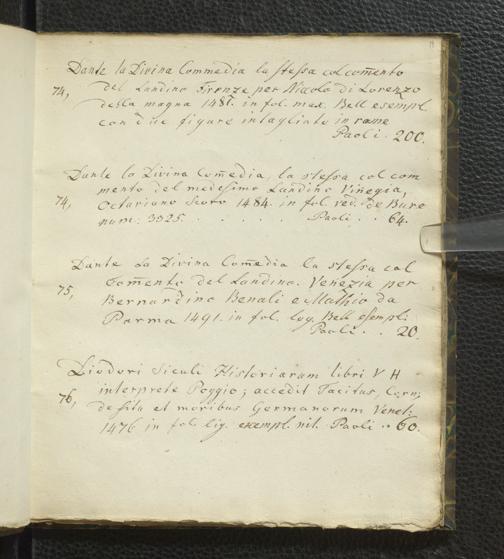 Dante la Divina Commedia la stessa col com̃ento
74, del Landino Firenze per Nicolò di Lorenzo
della magna 1481. in fol. max. Bell esempl
con due figure intagliate in rame
Paoli . 200.
Dante la Divina Com̃edia, la stessa col com
mento del medesimo Landino Vinegia,
74, Octaviano Scoto 1484. in fol. ved. de Bure
num: 3325. . . . . . Paoli . . 64.
Dante La Divina Com̃edia la stessa col
75, Com̃ento del Landino. Venezia per
Bernardino Benali e Mathio da
Parma 1491. in fol. leg. Bell esempl:
Paoli . . 20.
Diodori Siculi Historiarum libri VH
interprete Poggio; accedit Tacitus, Corn;
76, de situ et moribus Germanorum Venet:
1476 in fol. lig. exempl. nit. Paoli . . 60.